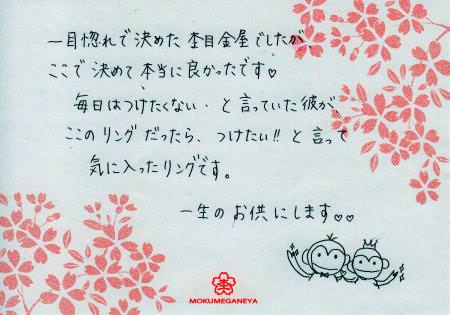 一目惚れで決めた杢目金屋でしたが、
ここで決めて本当に良かったです♡
毎日はつけたくない・と言っていた彼が
このリングだったら、つけたい!!と言って
気に入ったリングです。
一生のお供にします♡♡
杢
MOKUMEGANEYA